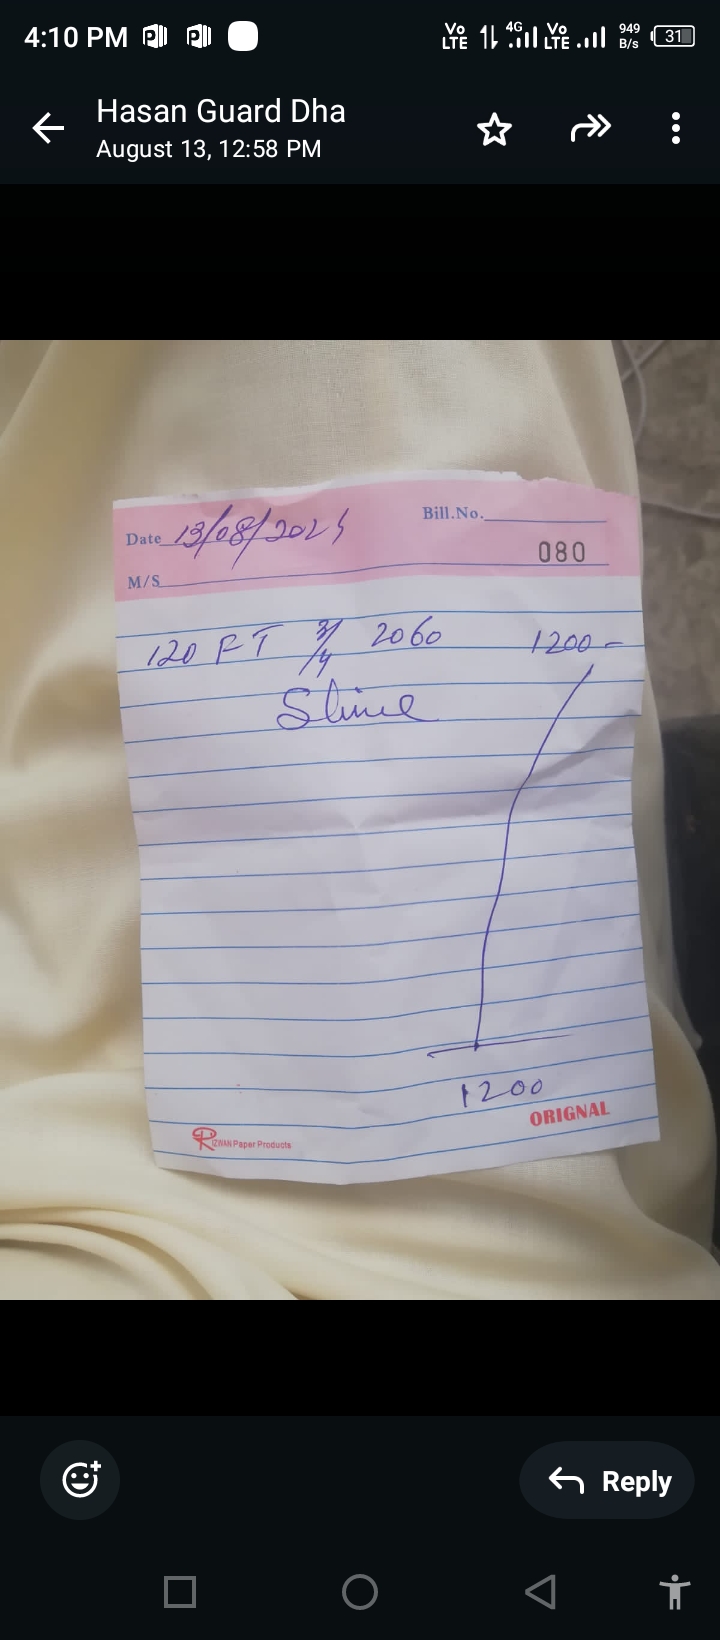 4:10 PM
Vo LTE 4G Vo LTE 949 B/s 31
Hasan Guard Dha
August 13, 12:58 PM
Date 13/08/2024 Bill.No.
080
M/S
120 FT 3/4 2060 1200-
Shine
1200
ORIGNAL
RIZWAN Paper Products
Reply